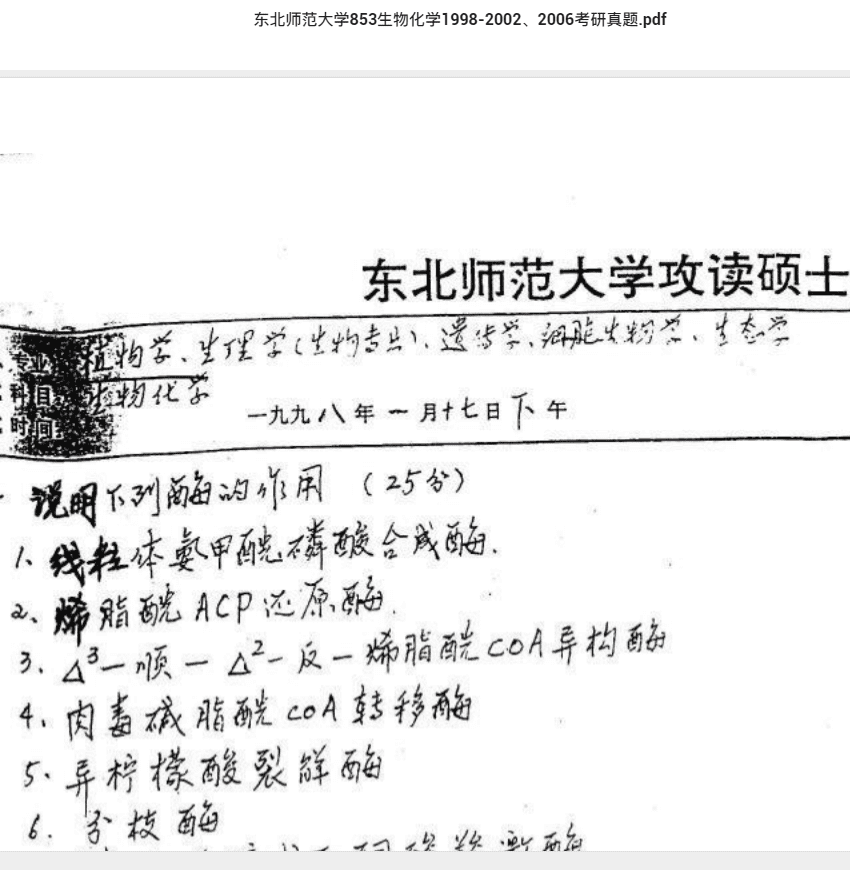 东北师范大学853生物化学1998-2002、2006考研真题.pdf
东北师范大学攻读硕士
专业 植物学、生理学(生物专业)、遗传学、细胞生物学、生态学
科目 生物化学
时间 一九九八年一月十七日下午
说明下列酶的作用 (25分)
1、线粒体氨甲酰磷酸合成酶.
2、烯脂酰ACP还原酶.
3、Δ³-顺-Δ²-反-烯脂酰COA异构酶
4、肉毒碱脂酰COA转移酶
5、异柠檬酸裂解酶
6、分枝酶